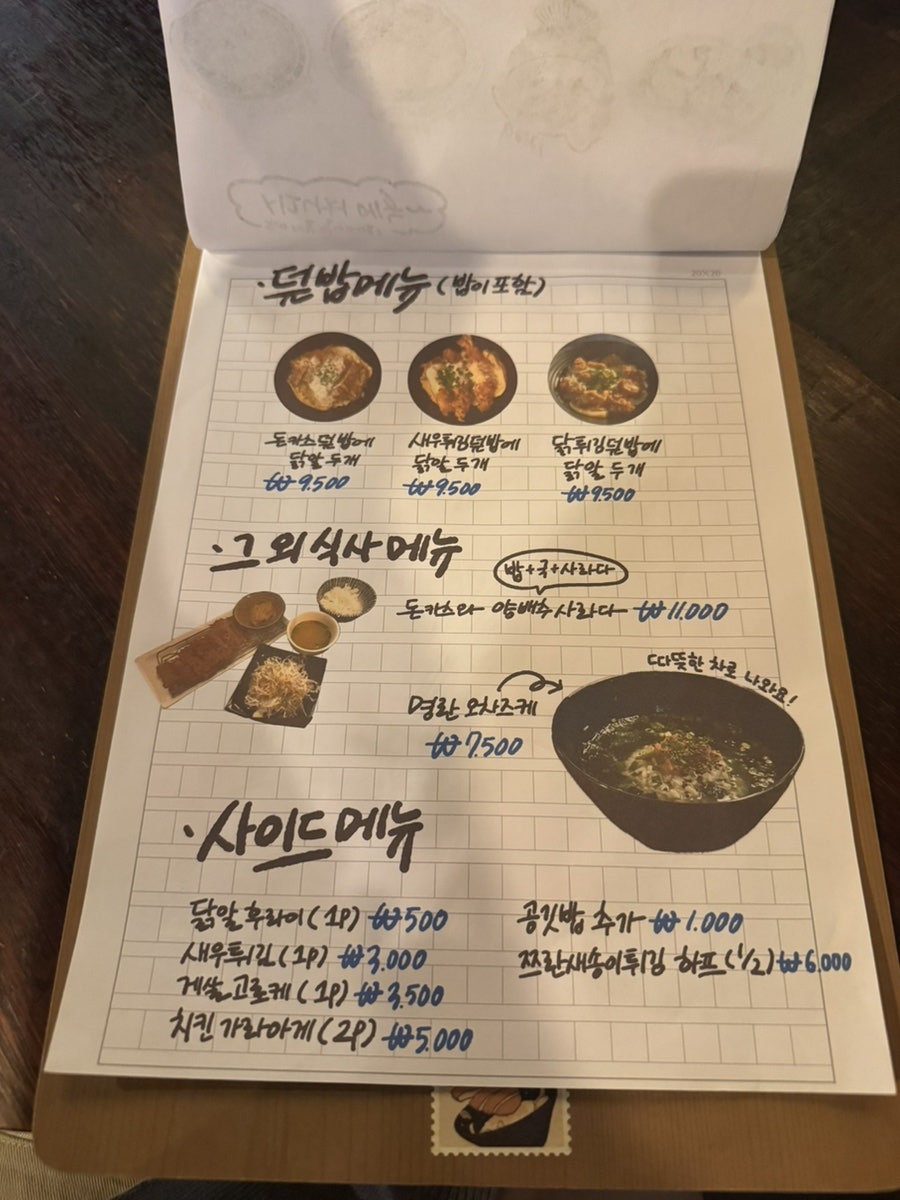 20X20
· 덮밥메뉴 (밥이 포함)
돈카츠덮밥에
닭알 두개
₩9.500
새우튀김덮밥에
닭알 두개
₩9.500
닭튀김덮밥에
닭알 두개
₩9.500
· 그 외 식사 메뉴
밥+국+사라다
돈카츠와 양배추사라다 ₩11.000
따뜻한 차로 나와요!
명란 오차즈케
₩7.500
· 사이드메뉴
닭알후라이(1P) ₩500
새우튀김(1P) ₩3.000
게쌀고로케(1P) ₩3,500
치킨 가라아게(2P) ₩5.000
공깃밥 추가 ₩1.000
쯔란새송이튀김 하프(1/2) ₩6.000